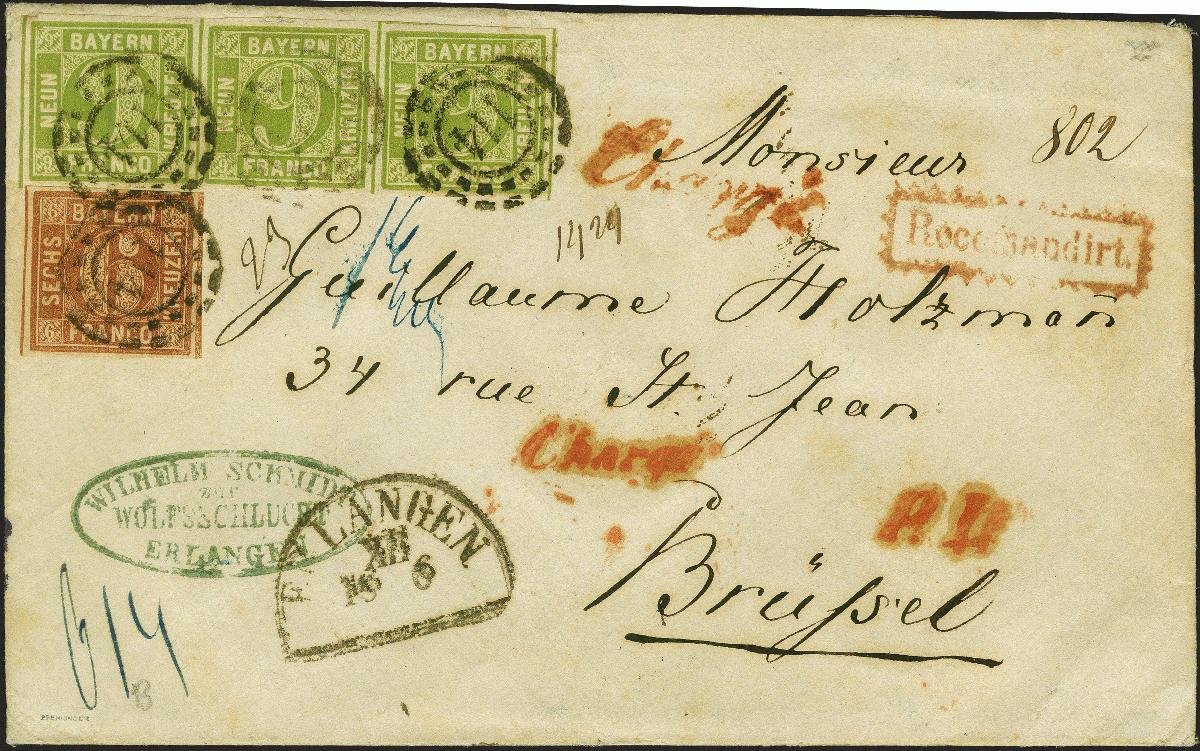 BAYERN
NEUN
KREUZER
FRANCO
9
BAYERN
NEUN
KREUZER
FRANCO
9
BAYERN
NEUN
KREUZER
FRANCO
9
BAYERN
SECHS
KREUZER
FRANCO
6
114
114
Monsieur
802
Chargé
Recomandirt.
23
1429
Guillaume Holzmañ
34 rue St. Jean
Chargé
P.D.
Brüssel
WILHELM SCHMIDT
zur
WOLFSSCHLUCHT
ERLANGEN
ERLANGEN
XII
16 6
6/4
B
PFENNINGER